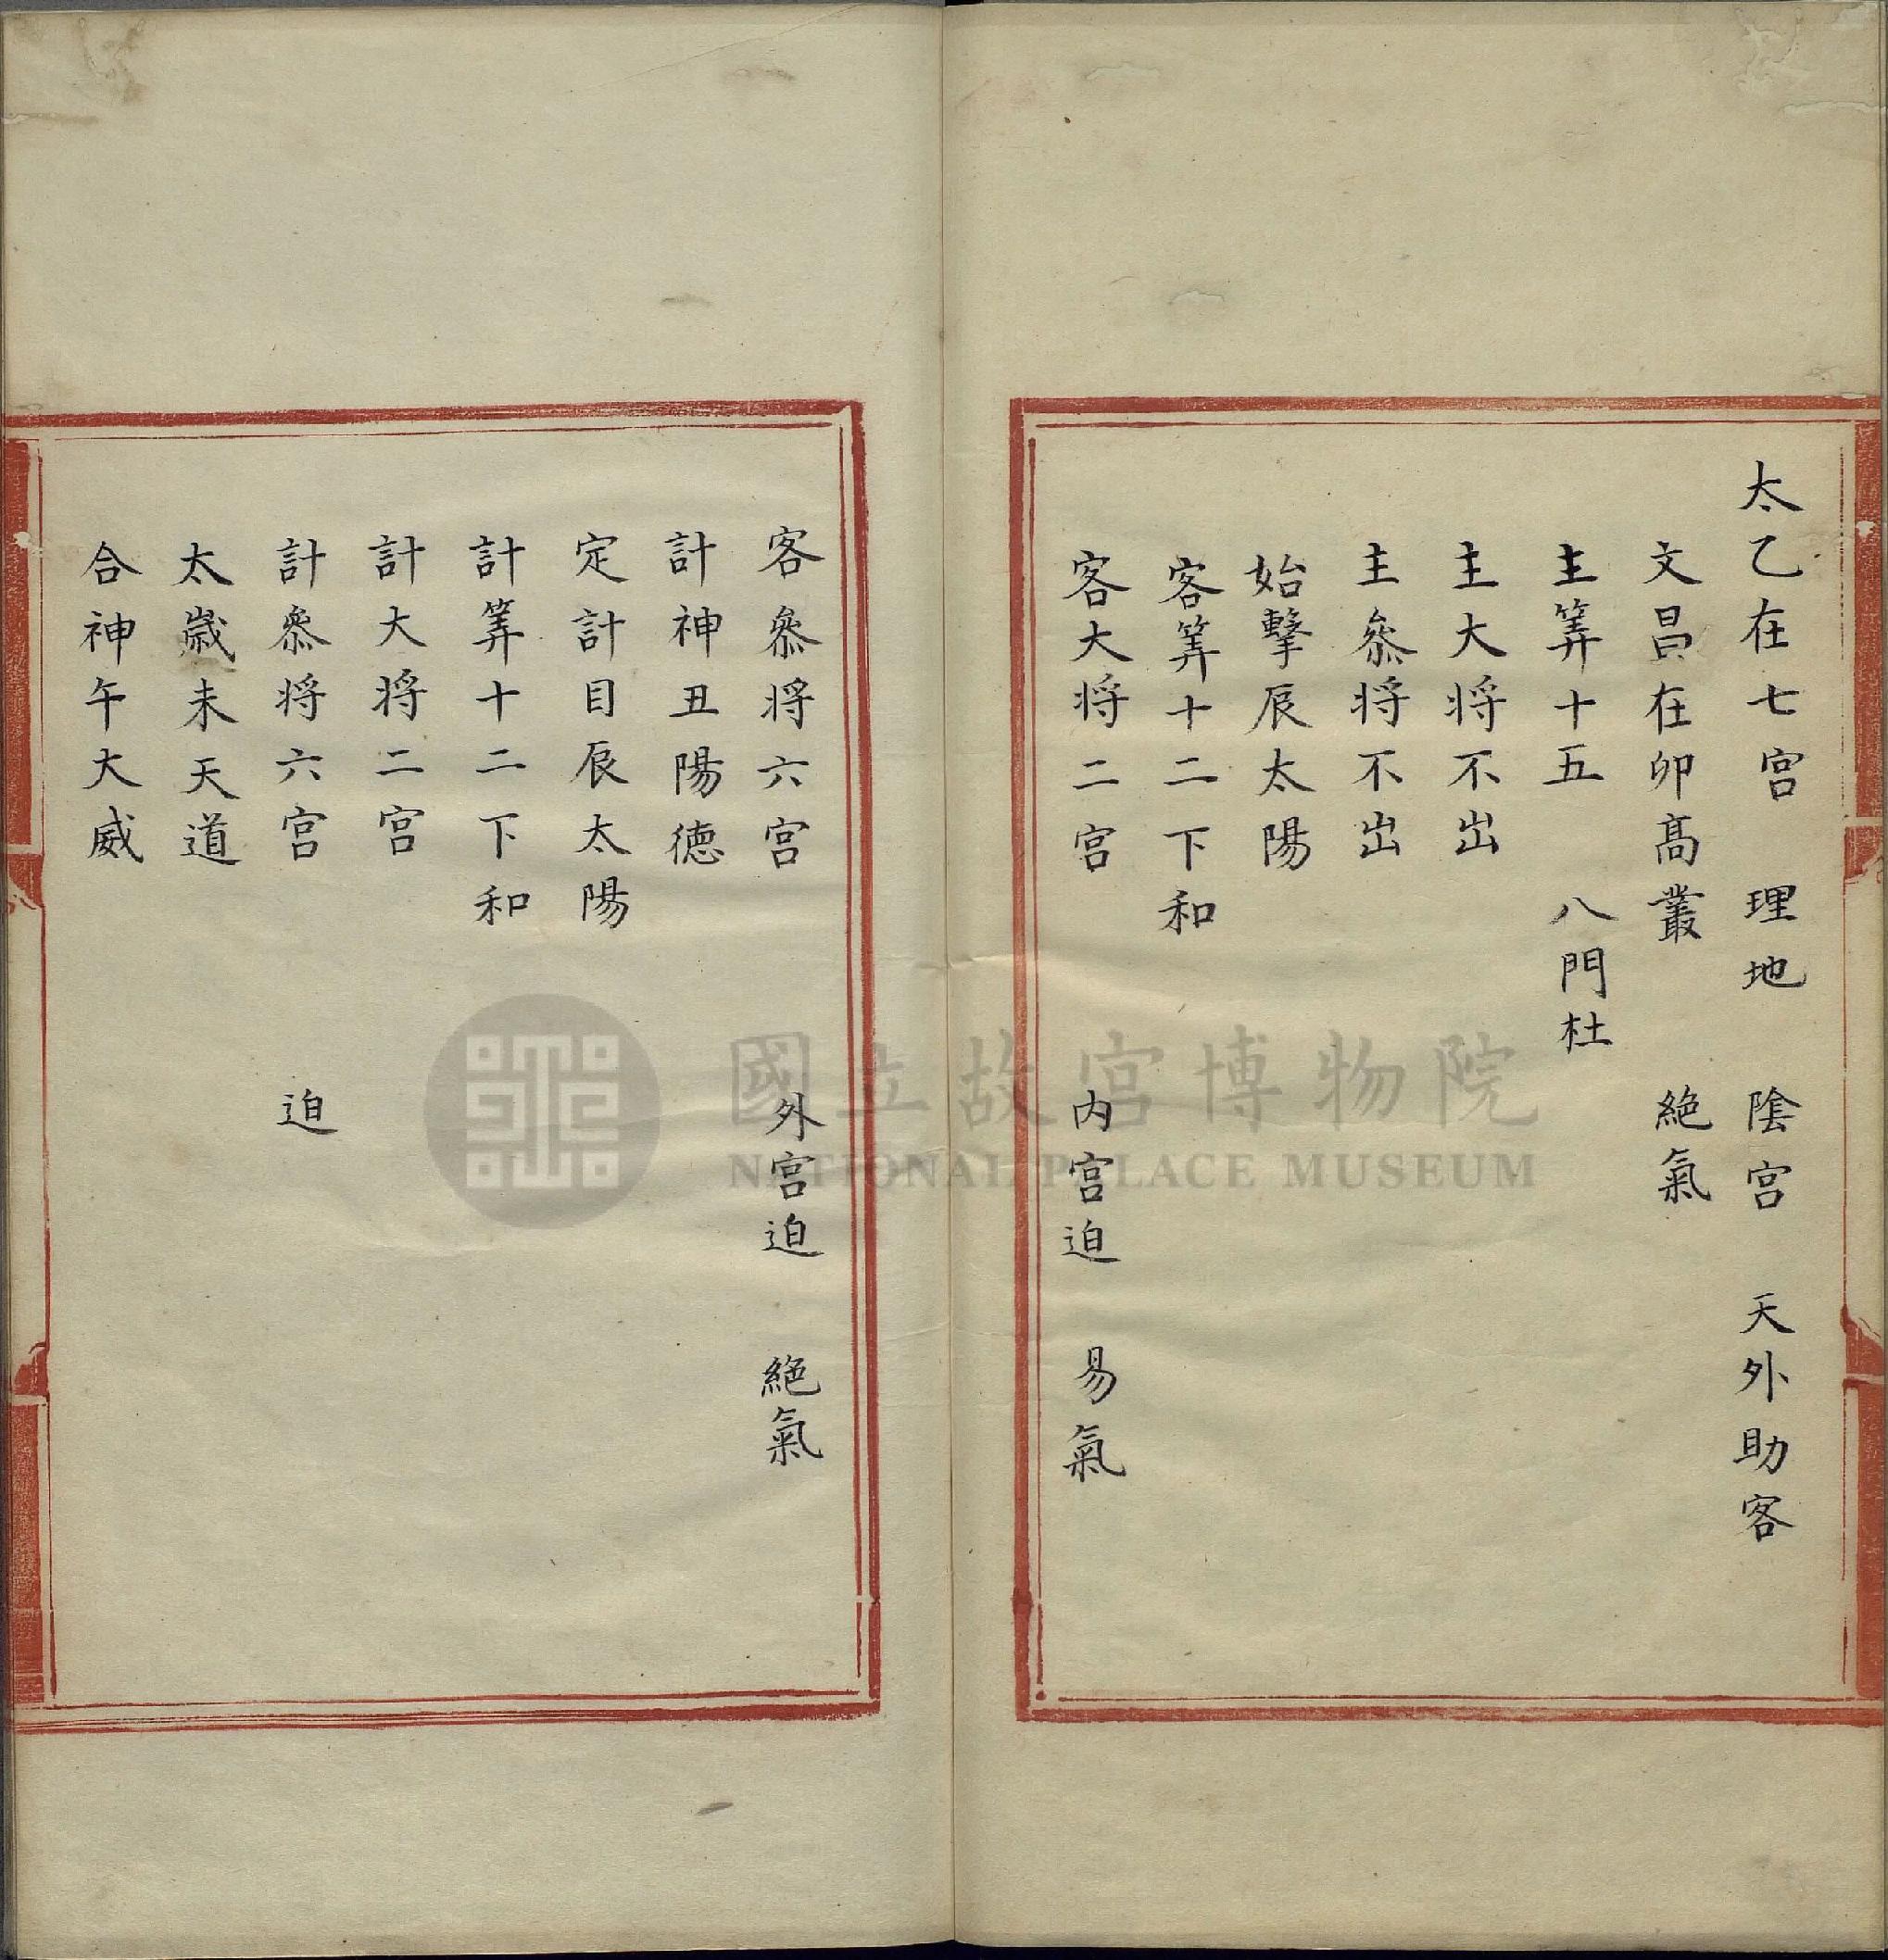 太乙在七宮　理地　陰宮　天外助客
文昌在卯高叢　絕氣
主筭十五　八門杜
主大將不出
主叅將不出
始擊辰太陽
客筭十二下和
客大將二宮　內宮迫　易氣
客叅將六宮　外宮迫　絕氣
計神丑陽德
定計目辰太陽
計筭十二下和
計大將二宮
計叅將六宮　迫
太歲未天道
合神午大威
國立故宮博物院
NATIONAL PALACE MUSEUM